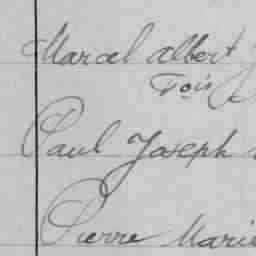 Marcel Albert
Paul Joseph
Pierre Marie